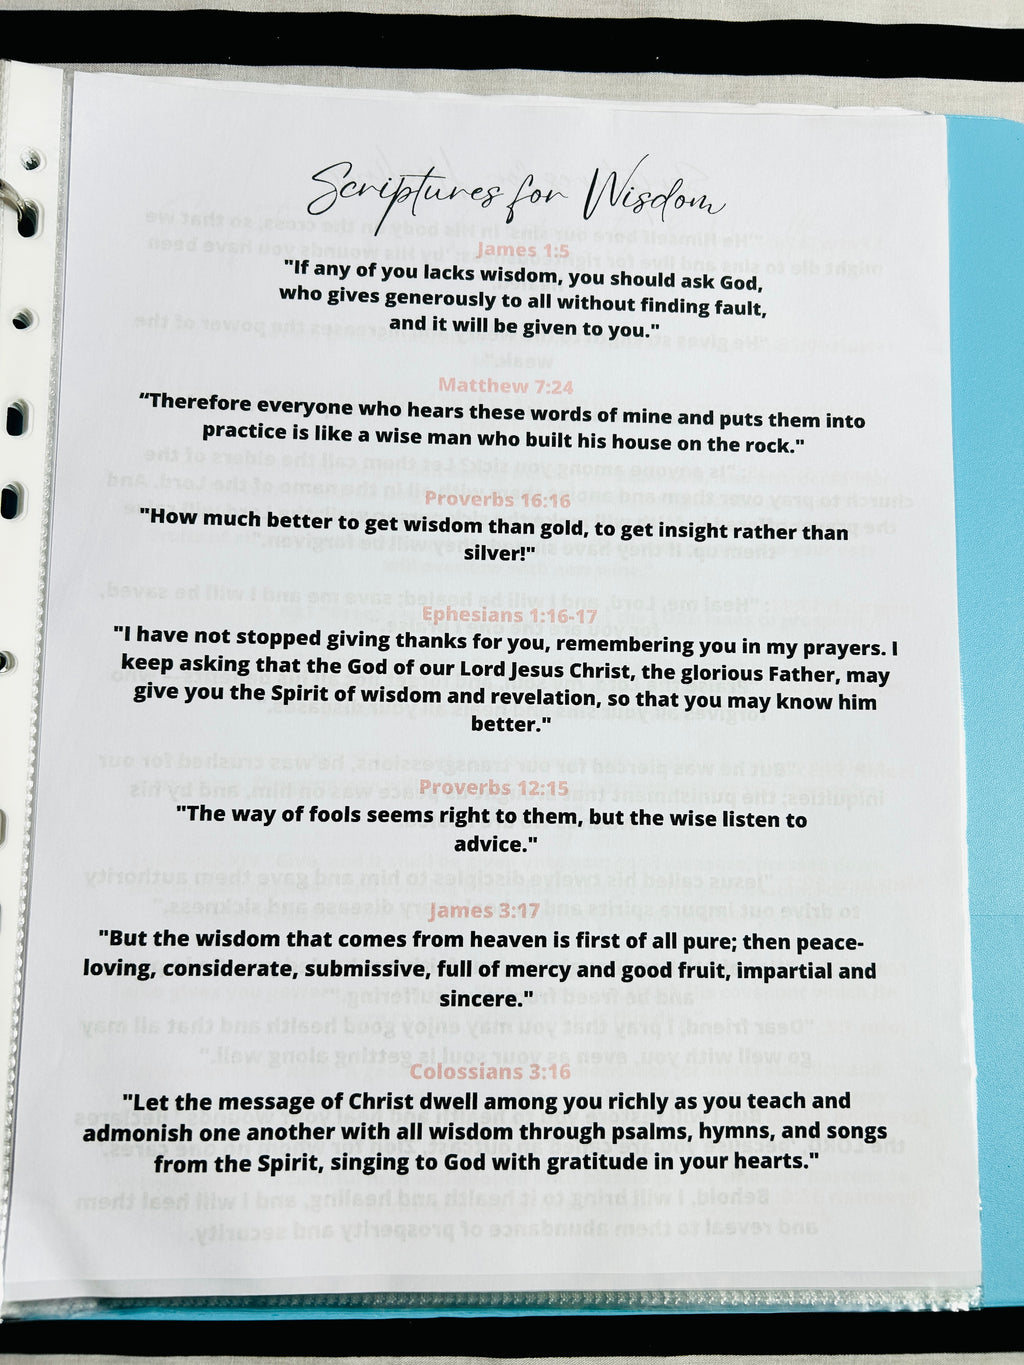 Scriptures for Wisdom
James 1:5
"If any of you lacks wisdom, you should ask God,
who gives generously to all without finding fault,
and it will be given to you."
Matthew 7:24
“Therefore everyone who hears these words of mine and puts them into
practice is like a wise man who built his house on the rock."
Proverbs 16:16
"How much better to get wisdom than gold, to get insight rather than
silver!"
Ephesians 1:16-17
"I have not stopped giving thanks for you, remembering you in my prayers. I
keep asking that the God of our Lord Jesus Christ, the glorious Father, may
give you the Spirit of wisdom and revelation, so that you may know him
better."
Proverbs 12:15
"The way of fools seems right to them, but the wise listen to
advice."
James 3:17
"But the wisdom that comes from heaven is first of all pure; then peace-
loving, considerate, submissive, full of mercy and good fruit, impartial and
sincere."
Colossians 3:16
"Let the message of Christ dwell among you richly as you teach and
admonish one another with all wisdom through psalms, hymns, and songs
from the Spirit, singing to God with gratitude in your hearts."